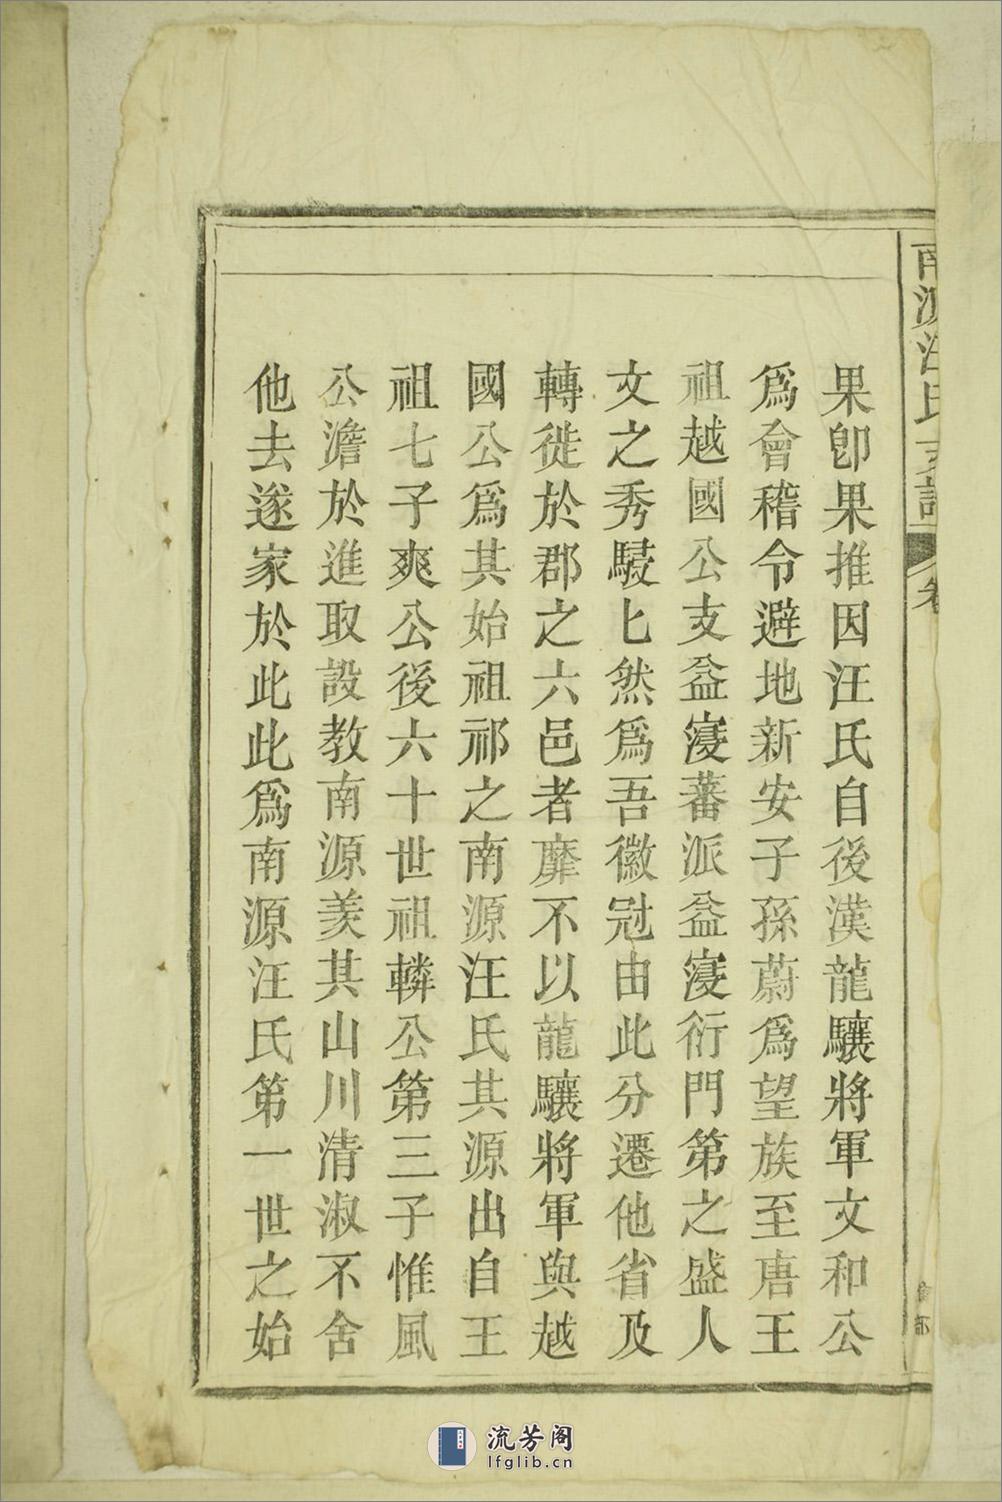 南源汪氏支譜
果卽果推因汪氏自後漢龍驤將軍文和公
爲會稽令避地新安子孫蔚爲望族至唐王
祖越國公支益寖蕃派益寖衍門第之盛人
文之秀駸匕然爲吾徽冠由此分遷他省及
轉徙於郡之六邑者靡不以龍驤將軍與越
國公爲其始祖祁之南源汪氏其源出自王
祖七子爽公後六十世祖轔公第三子惟風
公澹於進取設教南源羡其山川清淑不舍
他去遂家於此此爲南源汪氏第一世之始
流芳阁
lfglib.cn